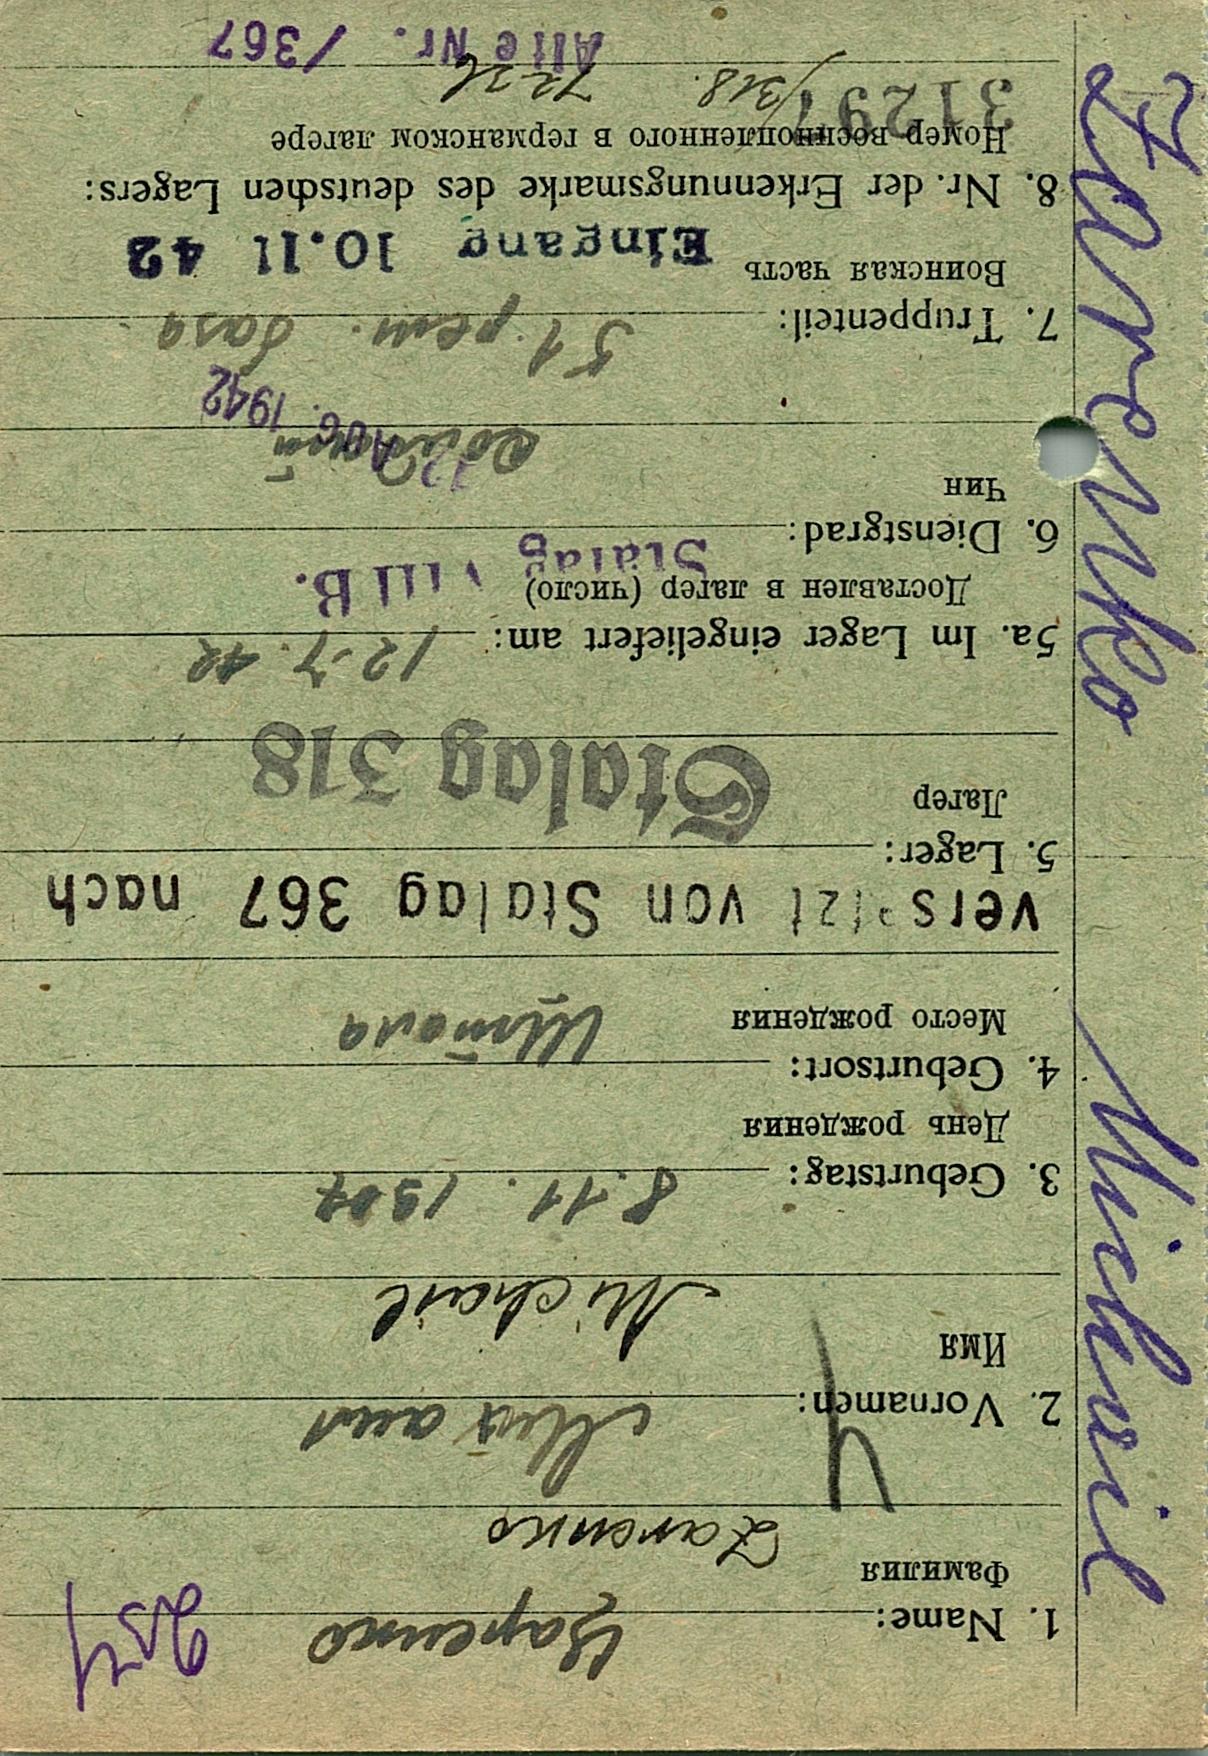 Zarenko Michail
254
1. Name: Царенко
Фамилия
Zarenko
2. Vornamen: Михаил
Имя
Michail
3. Geburtstag: 8.11.1907
День рождения
4. Geburtsort:
Место рождения
versetzt von Stalag 367 nach
5. Lager:
Лагер
Stalag 318
5a. Im Lager eingeliefert am: 12.7.42
Доставлен в лагер (число)
Stalag VIII B.
6. Dienstgrad:
Чин
12 AUG. 1942
7. Truppenteil: 51 рем. база
Воинская часть
Eingang 10.11 42
8. Nr. der Erkennungsmarke des deutschen Lagers:
Номер военнопленного в германском лагере
31297/318. 7236
Alte Nr. /367